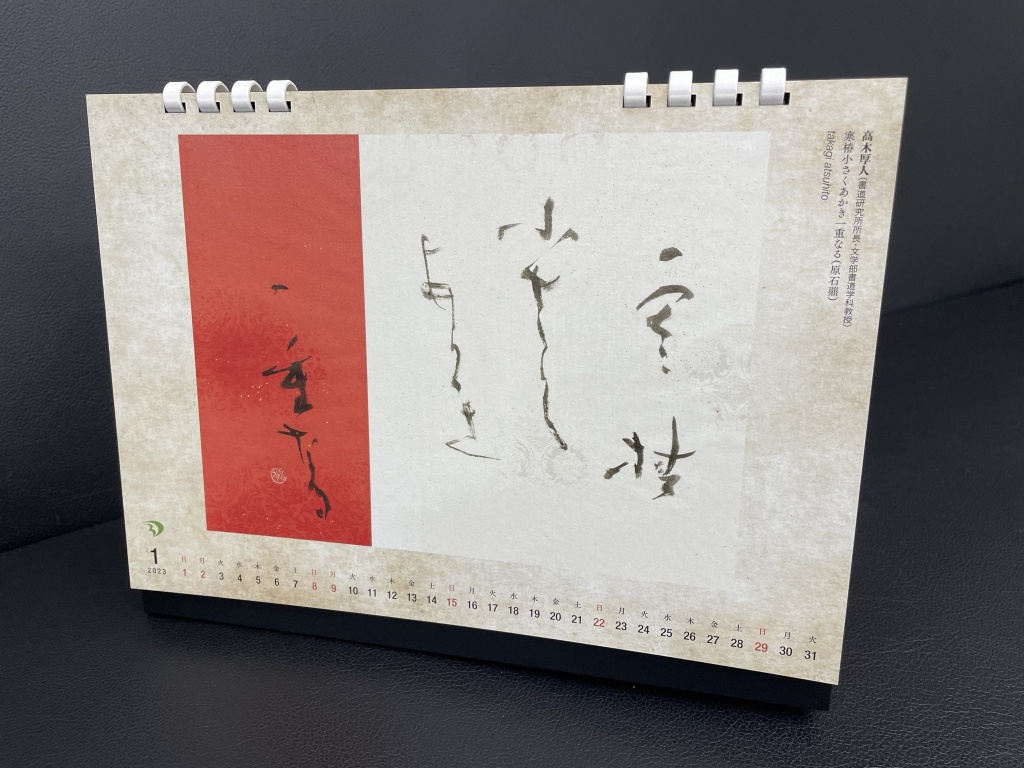 高木厚人(書道研究所所長・文学部書道学科教授)
寒椿小さくあかき一重なる(原石鼎)
takagi atsuhito
寒椿
小さく
あかき
一重なる
1
2023
日 月 火 水 木 金 土 日 月 火 水 木 金 土 日 月 火 水 木 金 土 日 月 火 水 木 金 土 日 月 火
1 2 3 4 5 6 7 8 9 10 11 12 13 14 15 16 17 18 19 20 21 22 23 24 25 26 27 28 29 30 31